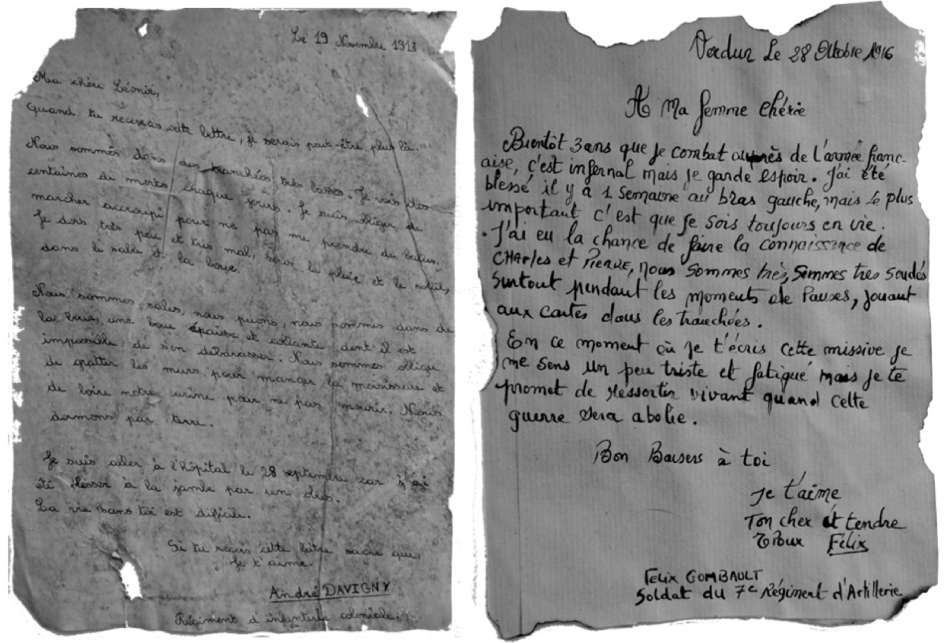 Le 19 Novembre 1918
Ma chère Léonie,
Quand tu recevras cette lettre, je serais peut-être plus là.
Nous sommes dans des tranchées très basses. Je vois des
centaines de morts chaque jours. Je suis obliger de
marcher accroupi pour ne pas me prendre de balles.
Je dors très peu et très mal, sous la pluie et le soleil,
dans le sable et la boue.
Nous sommes sales, nous puons, nous dans de
la boue, une boue épaisse et collante, dont il est
impossible de s'en débarasser. Nous sommes obliger
de gratter les murs pour manger la moisissure et
de boire notre urine pour ne pas mourir. Nous
dormons par terre.
Je suis aller à l'hôpital le 28 septembre car j'ai
été blesser à la jambe par un obus.
La vie sans toi est difficile.
Si tu reçois cette lettre sache que
Je t'aime.
André DAVIGNY
Régiment d'infanterie coloniale
Verdun Le 28 Octobre 1916
A Ma femme chérie
Bientôt 3 ans que je combat auprès de l'armée franc-
aise, c'est infernal mais je garde espoir. J'ai été
blessé il y a 1 Semaine au bras gauche, mais le plus
important c'est que je sois toujours en vie.
J'ai eu la chance de faire la connaissance de
CHarles et Pierre, nous Sommes très, Sommes très soudés
surtout pendant les moments de Pauses, jouant
aux cartes dans les tranchées.
En ce moment où je t'écris cette missive je
me sens un peu triste et fatigué mais je te
promet de ressortir vivant quand cette
guerre sera abolie.
Bon Baisers à toi
Je t'aime
Ton cher et tendre
Epoux Félix
FELIX GOMBAULT
Soldat du 7e Régiment d'Artillerie